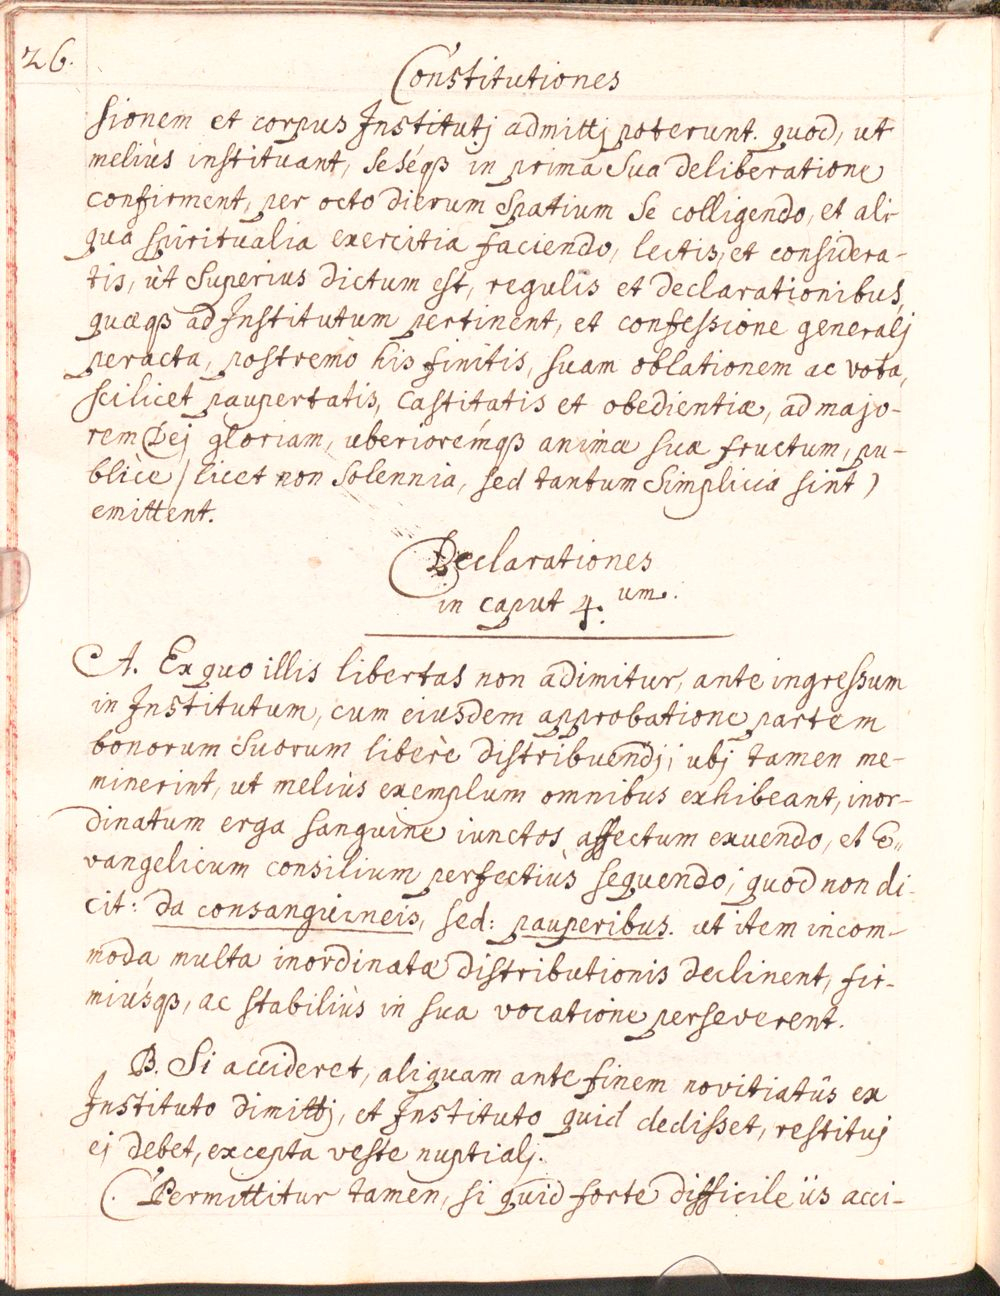 26.
Constitutiones
sionem et corpus Institutj admittj poterunt. quod, ut
meliùs instituant, seséqß in prima sua deliberatione
confirment, per octo dierum spatium se colligendo, et ali-
qua spiritualia exercitia faciendo, lectis, et considera-
tis, ùt superius dictum est, regulis et declarationibus,
quæqß ad Institutum pertinent, et confessione generalj
peracta, postremò his finitis, suam oblationem ac vota,
scilicet paupertatis, Castitatis et obedientiæ, ad majo-
rem Dej gloriam, uberioremqß animæ suæ fructum, pu-
blicè / licet non solennia, sed tantum simplicia sint )
emittent.
Declarationes
in caput 4.um.
A. Ex quo illis libertas non adimitur, ante ingressum
in Institutum, cum eiusdem approbatione partem
bonorum suorum liberè distribuendj; ubj tamen me-
minerint, ut meliùs exemplum omnibus exhibeant, inor-
dinatum erga sanguine iunctos affectum exuendo, et E„
vangelicum consilium perfectiùs sequendo; quod non di-
cit: da consanguineis, sed: pauperibus. ut item incom-
moda multa inordinatæ distributionis declinent, fir-
miùsqß, ac stabiliùs in sua vocatione perseverent.
B. Si accideret, aliquam ante finem novitiatûs ex
Instituto dimittj, et Instituto quid dedisset, restituj
ej debet, excepta veste nuptialj.
C. Permittitur tamen, si quid forte difficile iis acci-